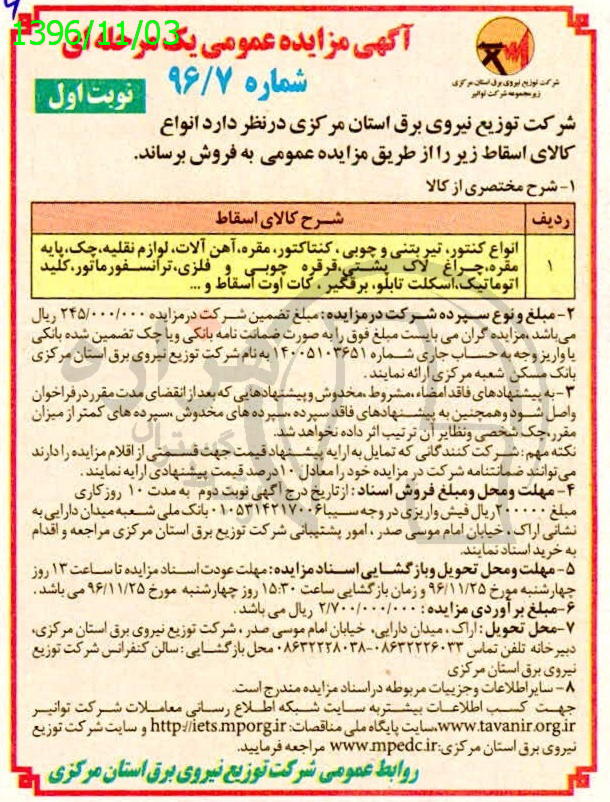 1396/11/03
آگهی مزایده عمومی یک مرحله ای
شماره ۹۶/۷
نوبت اول
شرکت توزیع نیروی برق استان مرکزی
زیرمجموعه شرکت توانیر
شرکت توزیع نیروی برق استان مرکزی درنظر دارد انواع
کالای اسقاط زیر را از طریق مزایده عمومی به فروش برساند.
۱- شرح مختصری از کالا
ردیف شـرح کالای اسقاط
انواع کنتور، تیر بتنی و چوبی، کنتاکتور، مقره، آهن آلات، لوازم نقلیه، چک، پایه
۱ مقره، چـراغ لاک پشـتی، قرقره چوبـی و فلزی، ترانسـفورماتور، کلید
اتوماتیک، اسکلت تابلو، برقگیر، کات اوت اسقاط و ...
۲- مبلغ و نوع سپرده شرکت در مزایده: مبلغ تضمین شرکت درمزایده ۲۴۵/۰۰۰/۰۰۰ ریال
می‌باشد، مزایده گران می بایست مبلغ فوق را به صورت ضمانت نامه بانکی ویا چک تضمین شده بانکی
یا واریز وجه به حساب جاری شماره ۱۴۰۰۵۱۰۳۶۵۱ به نام شرکت توزیع نیروی برق استان مرکزی
بانک مسکن شعبه مرکزی ارائه نمایند.
۳- به پیشنهادهای فاقد امضاء، مشروط، مخدوش و پیشنهادهایی که بعد از انقضای مدت مقرر در فراخوان
واصل شود و همچنین به پیشنهادهای فاقد سپرده، سپرده های مخدوش، سپرده های کمتر از میزان
مقرر، چک شخصی ونظایر آن ترتیب اثر داده نخواهد شد.
نکته مهم: شرکت کنندگانی که تمایل به ارایه پیشنهاد قیمت جهت قسمتی از اقلام مزایده را دارند
می‌توانند ضمانتنامه شرکت در مزایده خود را معادل ۱۰ درصد قیمت پیشنهادی ارایه نمایند.
۴- مهلت ومحل ومبلغ فروش اسناد: از تاریخ درج آگهی نوبت دوم به مدت ۱۰ روز کاری
مبلغ ۲۰۰۰۰۰ ریال فیش واریزی در وجه سیبا ۰۱۰۵۳۱۴۲۱۷۰۰۶ بانک ملی شعبه میدان دارایی به
نشانی اراک، خیابان امام موسی صدر، امور پشتیبانی شرکت توزیع برق استان مرکزی مراجعه و اقدام
به خرید اسناد نمایند.
۵- مهلت ومحل تحویل وبازگشایی اسناد مزایده: مهلت عودت اسناد مزایده تا ساعت ۱۳ روز
چهارشنبه مورخ ۹۶/۱۱/۲۵ و زمان بازگشایی ساعت ۱۵:۳۰ روز چهارشنبه مورخ ۹۶/۱۱/۲۵ می باشد.
۶- مبلغ برآوردی مزایده: ۲/۷۰۰/۰۰۰/۰۰۰ ریال می باشد.
۷- محل تحویل: اراک، میدان دارایی، خیابان امام موسی صدر، شرکت توزیع نیروی برق استان مرکزی،
دبیرخانه تلفن تماس ۰۸۶۳۲۲۲۶۰۳۳-۰۸۶۳۲۲۲۸۰۳۸ محل بازگشایی: سالن کنفرانس شرکت توزیع
نیروی برق استان مرکزی
۸- سایر اطلاعات و جزییات مربوطه در اسناد مزایده مندرج است.
جهت کسب اطلاعات بیشتر به سایت شبکه اطلاع رسانی معاملات شرکت توانیر
www.tavanir.org.ir، سایت پایگاه ملی مناقصات: http://iets.mporg.ir و سایت شرکت توزیع
نیروی برق استان مرکزی: www.mpedc.ir مراجعه فرمایید.
روابط عمومی شرکت توزیع نیروی برق استان مرکزی